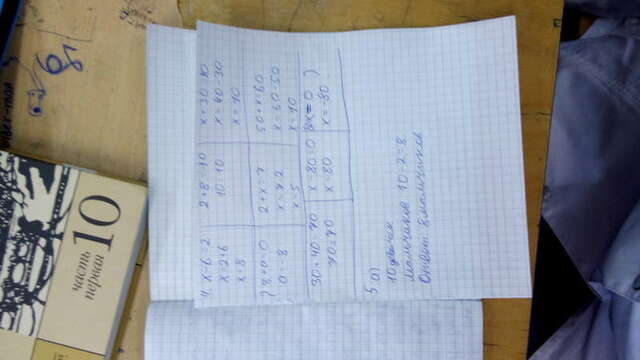 часть
первая
10
4. x-6=2
x=2+6
x=8
2+8=10
10=10
x+30=40
x=40-30
x=10
8+a=0
a=-8
2+x=7
x=7-2
x=5
50+x=60
x=60-50
x=10
30+40=70
70=70
x-80=0
x=80
x=-80
5 а)
10 девочек
мальчиков 10-2=8
Ответ 8 мальчиков